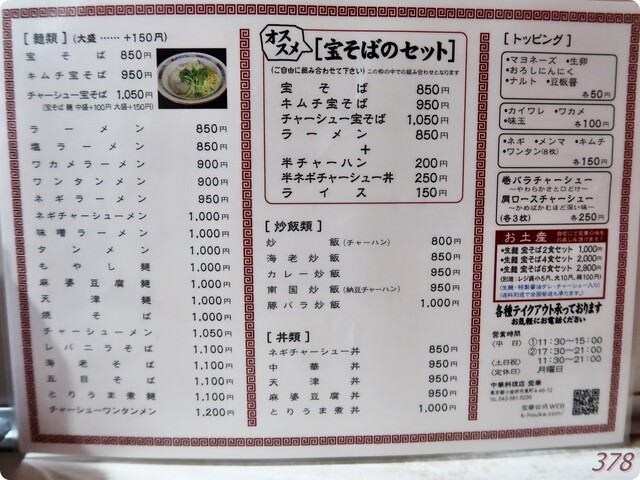 [ 麺類 ] (大盛 …… +150円)
宝そば 850円
キムチ宝そば 950円
チャーシュー宝そば 1,050円
(宝そば 麺 中盛+100円 大盛+150円)
ラーメン 850円
塩ラーメン 850円
ワカメラーメン 900円
ワンタンメン 900円
ネギラーメン 950円
ネギチャーシューメン 1,000円
味噌ラーメン 1,000円
タンメン 1,000円
もやし麺 1,000円
麻婆豆腐麺 1,000円
天津麺 1,000円
焼そば 1,000円
チャーシューメン 1,050円
レバニラそば 1,100円
海老そば 1,100円
五目そば 1,100円
とりうま煮麺 1,100円
チャーシューワンタンメン 1,200円
オススメ
[宝そばのセット]
(ご自由に組み合わせて下さい) この枠の中での組み合わせとなります
宝そば 850円
キムチ宝そば 950円
チャーシュー宝そば 1,050円
ラーメン 850円
+
半チャーハン 200円
半ネギチャーシュー丼 250円
ライス 150円
[ 炒飯類 ]
炒飯(チャーハン) 800円
海老炒飯 950円
カレー炒飯 950円
南国炒飯(納豆チャーハン) 950円
豚バラ炒飯 1,000円
[ 丼類 ]
ネギチャーシュー丼 850円
中華丼 950円
天津丼 950円
麻婆豆腐丼 950円
とりうま煮丼 1,000円
[ トッピング ]
•マヨネーズ •生卵
•おろしにんにく
•ナルト •豆板醤
各50円
•カイワレ •ワカメ
•味玉
各100円
•ネギ •メンマ •キムチ
•ワンタン(8枚)
各150円
巻バラチャーシュー
〜やわらかさと口どけ〜
肩ロースチャーシュー
〜かめばかむほど深い味〜
(各3枚) 各250円
お土産
自宅にて宝華の味をお楽しみ頂けます!
•生麺 宝そば2食セット 1,000円
•生麺 宝そば4食セット 2,000円
•生麺 宝そば6食セット 2,800円
(別途：レジ袋小5円、大10円、箱100円)
(生麺・特製醤油ダレ・チャーシュー入り)
(送料別途で全国発送も承ります。)
各種テイクアウト承っております
お気軽にお電話ください
営業時間
〈平 日〉 ①11:30〜15:00
②17:30〜21:00
〈土日祝〉 11:30〜21:00
〈定休日〉 月曜日
中華料理店 宝華
TEL 042-381-5235
宝華公式WEB
k-houka.com/
378